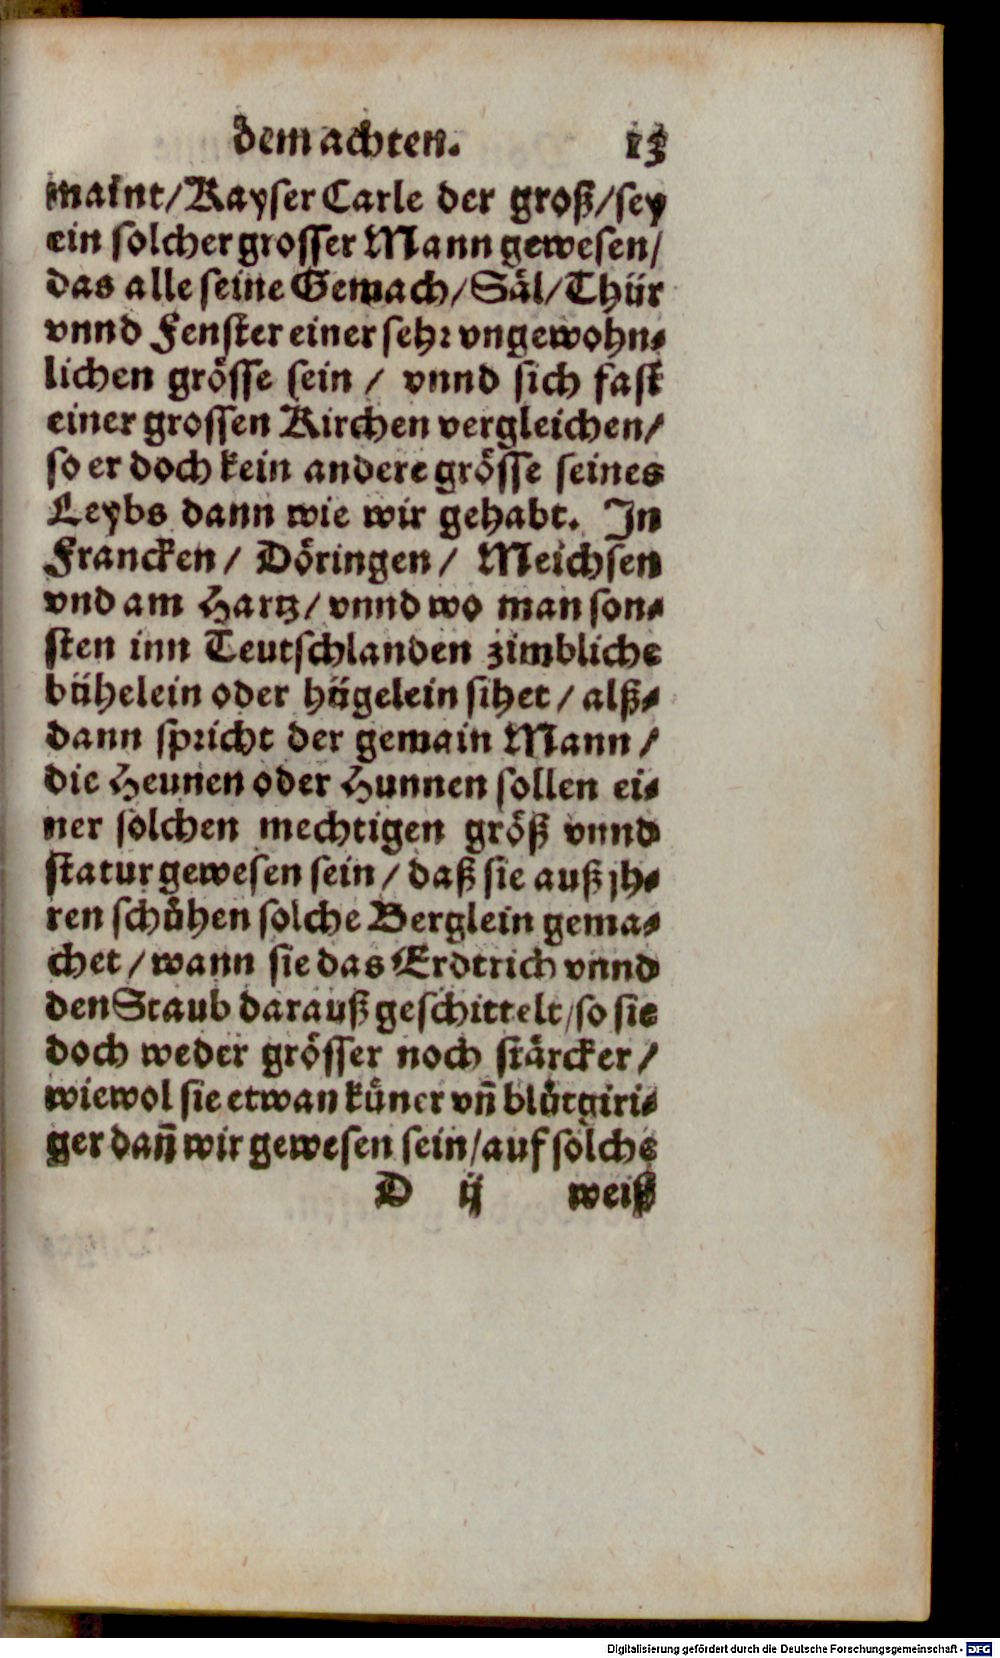 dem achten. 13
maint/Kayser Carle der groß/sey
ein solcher grosser Mann gewesen/
das alle seine Gemach/Säl/Thür
vnnd Fenster einer sehr vngewohn-
lichen grösse sein / vnnd sich fast
einer grossen Kirchen vergleichen/
so er doch kein andere grösse seines
Leybs dann wie wir gehabt. In
Francken / Döringen / Meichsen
vnd am Hartz/ vnnd wo man son-
sten inn Teutschlanden zimbliche
bühelein oder hügelein sihet / alß-
dann spricht der gemain Mann /
die Heunen oder Hunnen sollen ei-
ner solchen mechtigen größ vnnd
statur gewesen sein / daß sie auß jh-
ren schůhen solche Berglein gema-
chet / wann sie das Erdtrich vnnd
den Staub darauß geschittelt/so sie
doch weder grösser noch stärcker /
wiewol sie etwan küner vn̄ blůtgiri-
ger dañ wir gewesen sein/auf solche
D ij weiß
Digitalisierung gefördert durch die Deutsche Forschungsgemeinschaft - DFG